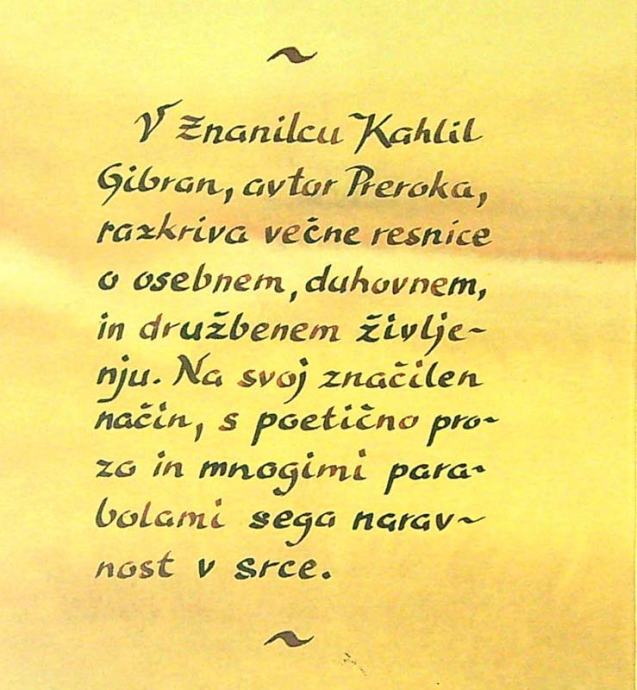 ~
V Znanilcu Kahlil
Gibran, avtor Preroka,
razkriva večne resnice
o osebnem, duhovnem,
in družbenem življe~
nju. Na svoj značilen
način, s poetično pro-
zo in mnogimi para-
bolami sega narav~
nost v srce.
~